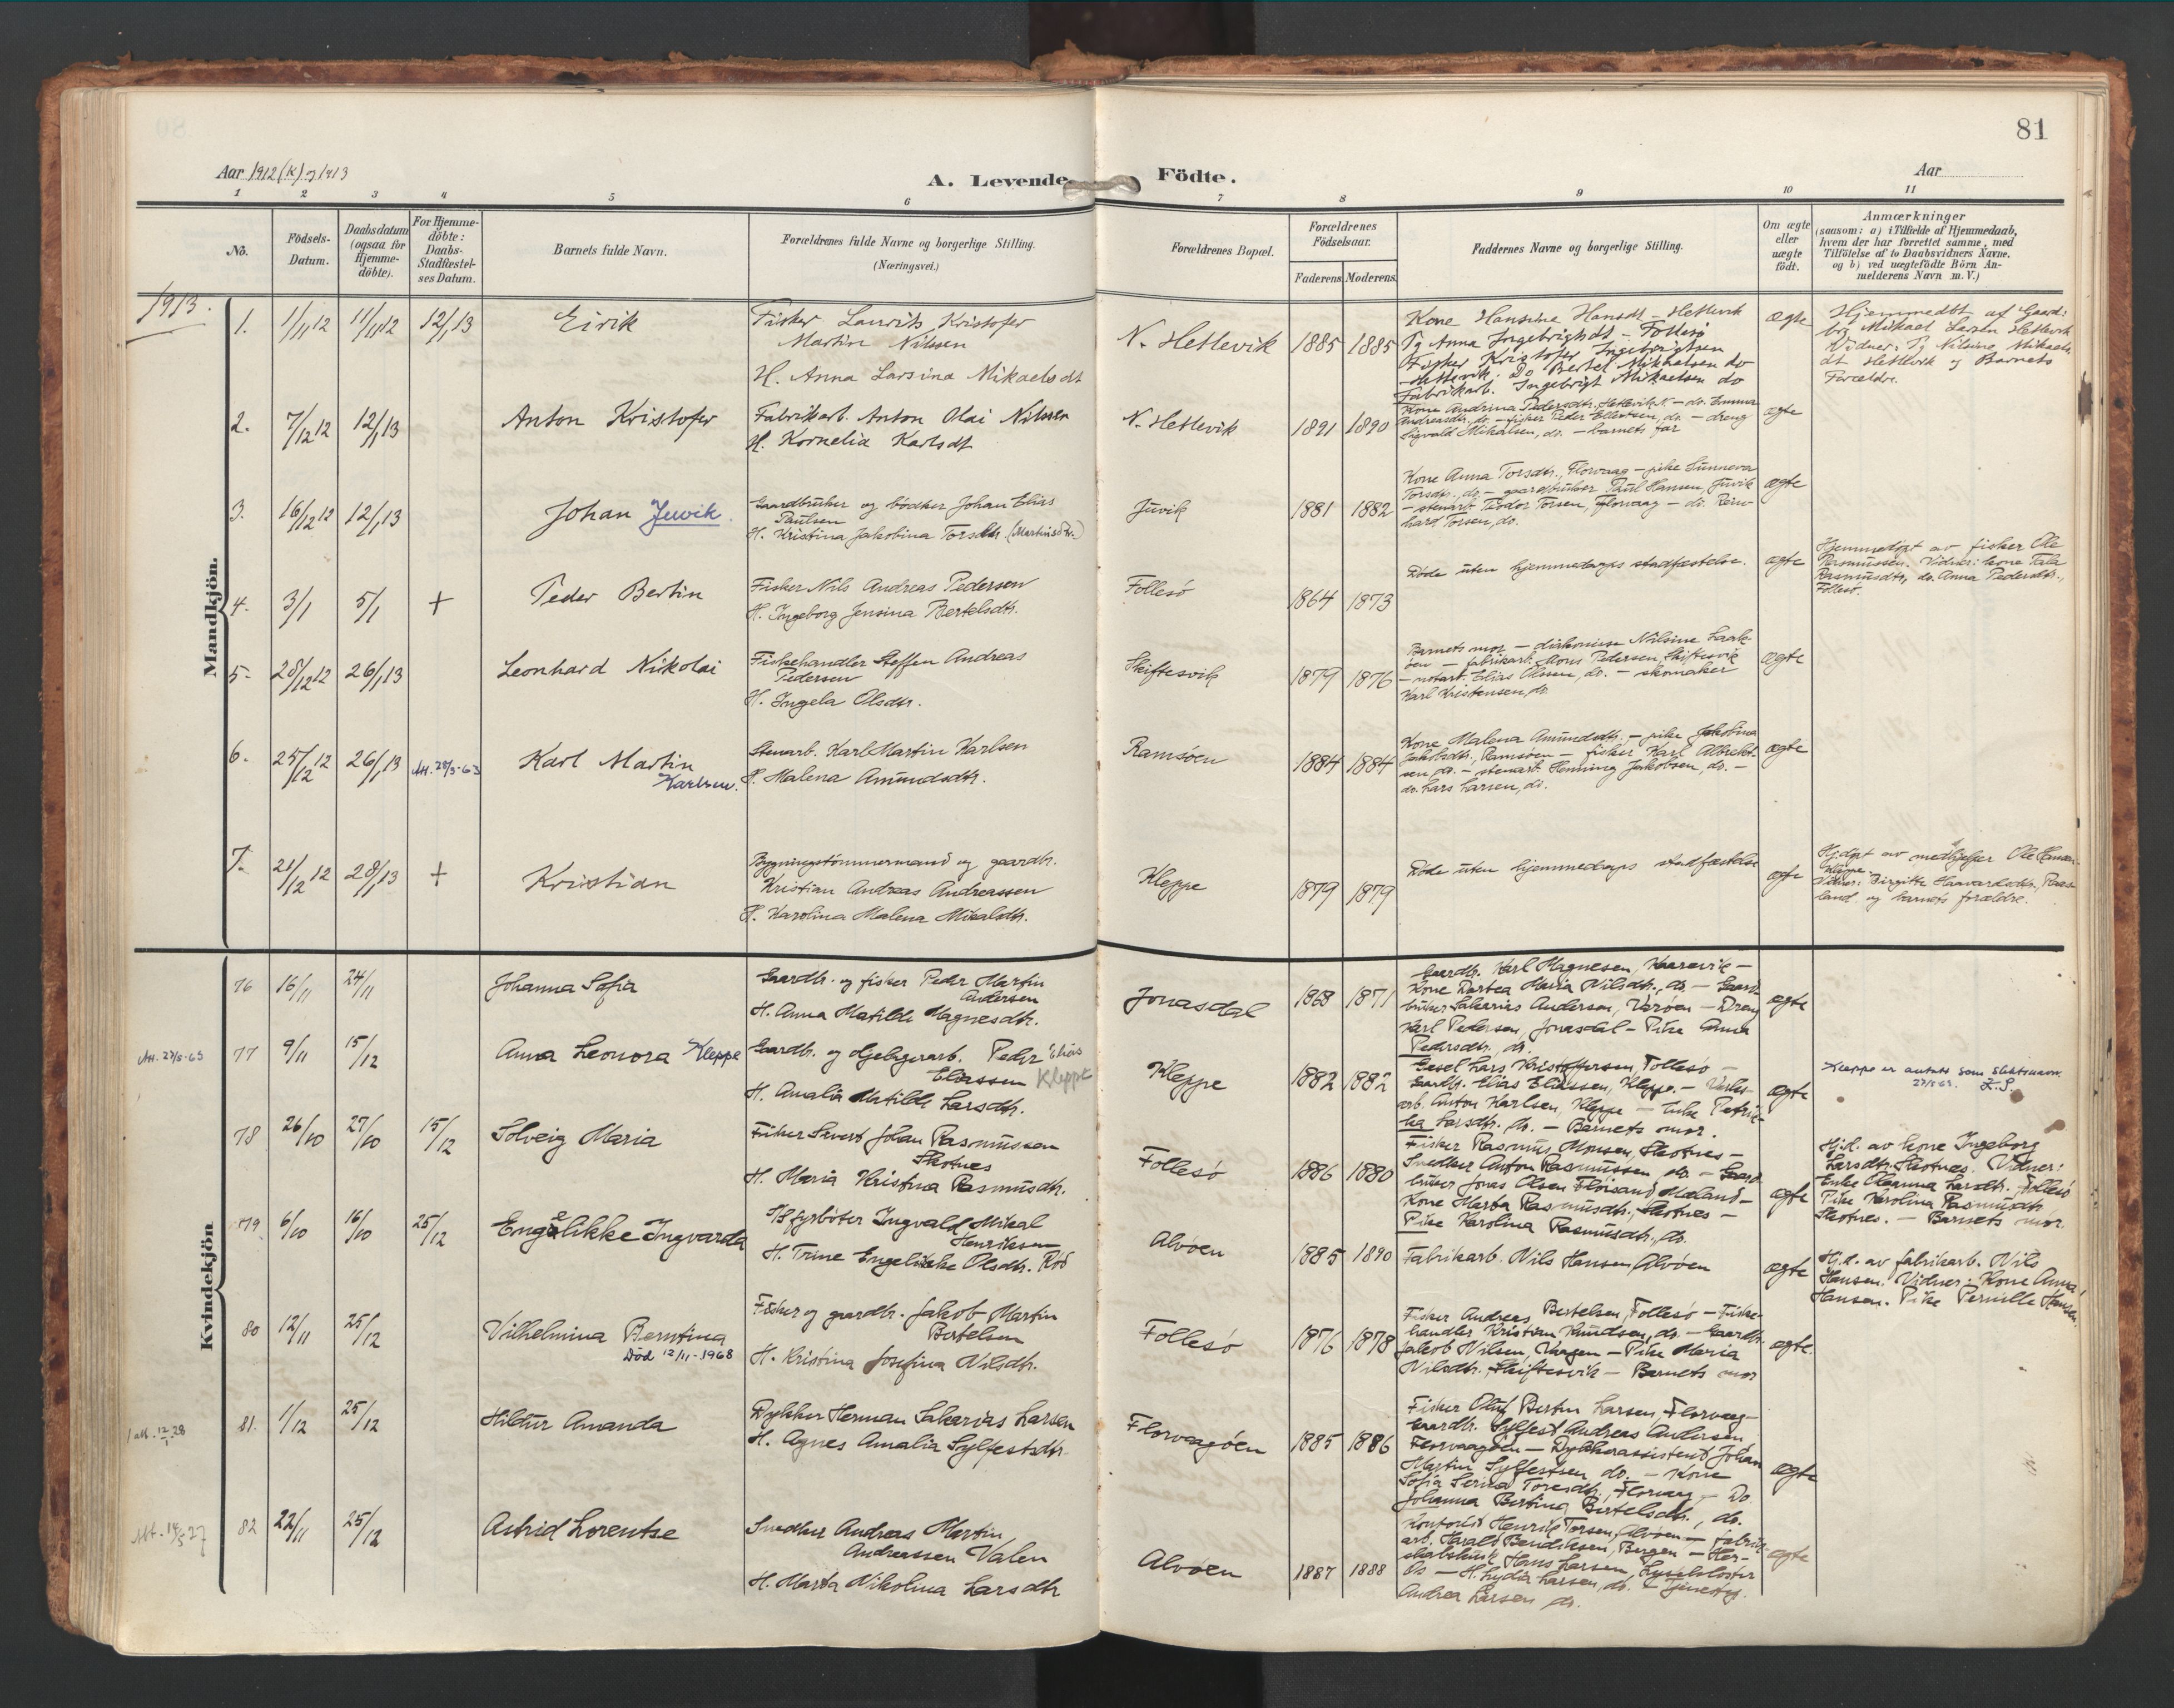 81
Aar 1912 (K) og 1913
A. Levende
Födte.
Aar
1 2 3 4 5 6 7 8 9 10 11
No.
Födsels-
Datum.
Daabsdatum
(ogsaa for
Hjemme-
döbte).
For Hjemme-
döbte:
Daabs-
Stadfæstel-
ses Datum.
Barnets fulde Navn.
Forældrenes fulde Navne og borgerlige Stilling.
(Næringsvei.)
Forældrenes Bopæl.
Forældrenes
Födselsaar.
Faderens
Moderens
Faddernes Navne og borgerlige Stilling.
Om ægte
eller
uægte
födt.
Anmærkninger
(saasom: a) i Tilfælde af Hjemmedaab,
hvem der har forrettet samme, med
Tilföielse af to Daabsvidners Navne,
og b) ved uægtefödte Börn An-
melderens Navn m. V.)
1913.
Mandkjön.
1. 1/11 12 11/11 12 12/1 13
Eirik
Fisker Laurits Kristofer
Martin Nilssen
H. Anna Larsina Mikaelsdt
N. Hetlevik
1885 1885
Kone Hansine Hansdt - Hetlevik
Pg Anna Ingebrigtsdt - Follesö
Fisker Kristofer Ingebrigtsen
Hetlevik. Do Bertel Mikkaelsen do
Fabrikarb. Ingebrigt Mikaelsen do
ægte
Hjemmedöbt af Gaard-
br Mikael Larsen Hetlevik
Vidner: Pg Nilsine Mikaels
dt Hetlevik og Barnets
Forældre.
2. 7/12 12 12/1 13
Anton Kristofer
Fabrikarb. Anton Olai Nilssen
H. Kornelia Karlsdt
N. Hetlevik
1891 1890
Kone Andrina Pedersdtr. Hetlevik N. - do. Emma
Andreasdtr. do - fisker Peder Ellertsen, do. - dreng
Sigvald Mikalsen, do. - barnets far
ægte
3. 16/12 12 12/1 13
Johan Juvik.
Gaardbruker og bödker Johan Elias
Paulsen
H. Kristina Jakobina Torsdtr. (Martinsdtr.)
Juvik
1881 1882
Kone Anna Torsdtr., Florvaag - pike Sunneva
Torsdtr., do. - gaardbruker Paul Hansen, Juvik
- stenarb. Teodor Torsen, Florvaag - do. Rein-
hard Torsen, do.
ægte
4. 3/1 5/1 +
Peder Bertin
Fisker Nils Andreas Pedersen
H. Ingeborg Jensina Bertelsdtr.
Follesö
1864 1873
Döde uten hjemmedaaps stadfæstelse.
ægte
Hjemmedöpt av fisker Ole
Rasmussen. Vidner: kone Tala
Rasmusdtr, do. Anna Pedersdtr.,
Follesö.
5. 28/12 12 26/1 13
Leonhard Nikolai
Fiskehandler Steffen Andreas
Pedersen
H. Ingela Olsdtr.
Skiftesvik
1879 1876
Barnets mor - diakonisse Nilsine Laak-
en - fabrikarb. Mons Pedersen, Skiftesvik
- notarb. Elias Olssen, do. - skomaker
Karl Kristensen, do.
ægte
6. 25/12 12 26/1 13 Att. 28/5-63
Karl Martin
Karlsen.
Stenarb. Karl Martin Karlsen
H. Malena Amundsdtr.
Ramsöen
1884 1884
Kone Malena Amundsdtr. - pike Jakobina
Jakobsdtr., Ramsöen - fisker Karl Albrekt-
sen, do. - stenarb. Henning Jakobsen, do. -
do. Lars Larsen, do.
ægte
7. 21/12 12 28/1 13 +
Kristian
Bygningstömmermand og gaardbr.
Kristian Andreas Andreassen
H. Karolina Malena Mikalsdtr.
Kleppe
1879 1879
Döde uten hjemmedaaps stadfæstelse
ægte
Hj.döpt av medhjelper Ole Hansen
Kleppe.
Vidner: Birgitte Haavardsdtr,
land og barnets forældre.
Kvindekjön
76 16/11 24/11
Johanna Sofia
Gaardbr. og fisker Peder Martin
Andersen
H. Anna Matilde Magnesdtr.
Jonasdal
1868 1871
Gaardbr. Karl Magnesen, Kaarevik -
Kone Dortea Maria Nilsdtr., do. - Gaard-
bruker Sakarias Andersen, Varöen - Dreng
Karl Pedersen, Jonasdal - Pike Anna
Pedersdtr., do.
ægte
Att. 27/5-63
77 9/11 15/12
Anna Leonora Kleppe
Gaardbr. og oljelagerarb. Peder Elias
Eliassen Kleppe
H. Amalia Matilde Larsdtr.
Kleppe
1882 1882
Gesel Lars Kristoffersen, Follesö -
Gaardbr. Elias Eliassen, Kleppe. -
arb. Anton Karlsen, Kleppe - Enke Petrik-
ka Larsdtr. do. - Barnets mor.
ægte
Kleppe er antatt som slektsnavn
27/5-63. K.S.
78 26/10 27/10 15/12
Solveig Maria
Fisker Sivert Johan Rasmussen
Skotnes
H. Maria Kristina Rasmusdtr.
Follesö
1886 1880
Fisker Rasmus Monsen, Skotnes -
Snedker Anton Rasmussen do. - Gaard-
bruker Jonas Olsen Flöisand Mæland -
Kone Marta Rasmusdtr., Skotnes -
Pike Karolina Rasmusdtr., do.
ægte
Hj.d. av kone Ingeborg
Larsdtr. Skotnes. Vidner:
Enke Oleanna Larsdtr. Follesö
Pike Karolina Rasmusdtr
Skotnes. - Barnets mor.
79 6/10 16/10 25/12
Engelikke Ingvarda
fyrböter Ingvald Mikal
Henriksen
H. Trine Engelikke Olsdtr. Röd
Alvöen
1885 1890
Fabrikarb. Nils Hansen, Alvöen
ægte
Hj.d. av fabrikarb. Nils
Hansen. Vidner: Kone Anna
Hansen. Pike Pernille Hansen.
80 12/11 25/12
Vilhelmina Berntina
Död 12/11-1968
Fisker og gaardbr. Jakob Martin
Bertelsen
H. Kristina Josefina Nilsdtr.
Follesö
1876 1878
Fisker Andreas Bertelsen, Follesö - Fiske-
handler Kristian Knudsen, do. - Gaardbr.
Jakob Nilsen, - Pike Maria
Nilsdtr. Skiftesvik - Barnets mor
ægte.
1 att. 12/1-28
81. 1/12 25/12
Hildur Amanda
Dykker Herman Sakarias Larsen
H. Agnes Amalia Sylfestsdtr.
Florvaagöen
1885 1886
Fisker Oluf Bertin Larsen, Florvaag -
Gaardbr. Sylfest Andreas Andersen
Florvaagöen - Dykkerassistent Johan
Martin Sylfestsen do. - Kone
Sofia Serina Toresdtr., Florvaag - Do.
Johanna Bertina Bertelsdtr., do.
ægte
Att. 14/5-27
82 22/11 25/12
Astrid Lorentse
Snedker Andreas Martin
Andreassen Valen
H. Marta Nikolina Larsdtr
Alvöen
1887 1888
Kontorist Henrik Torsen, Alvöen - fabrik-
arb. Harald Bendiksen, Bergen - Her-
Hans Larsen, Lysekloster
Os - H. Lydia Larsen, do. - Tjenestepg.
Andrea Larsen do.
ægte